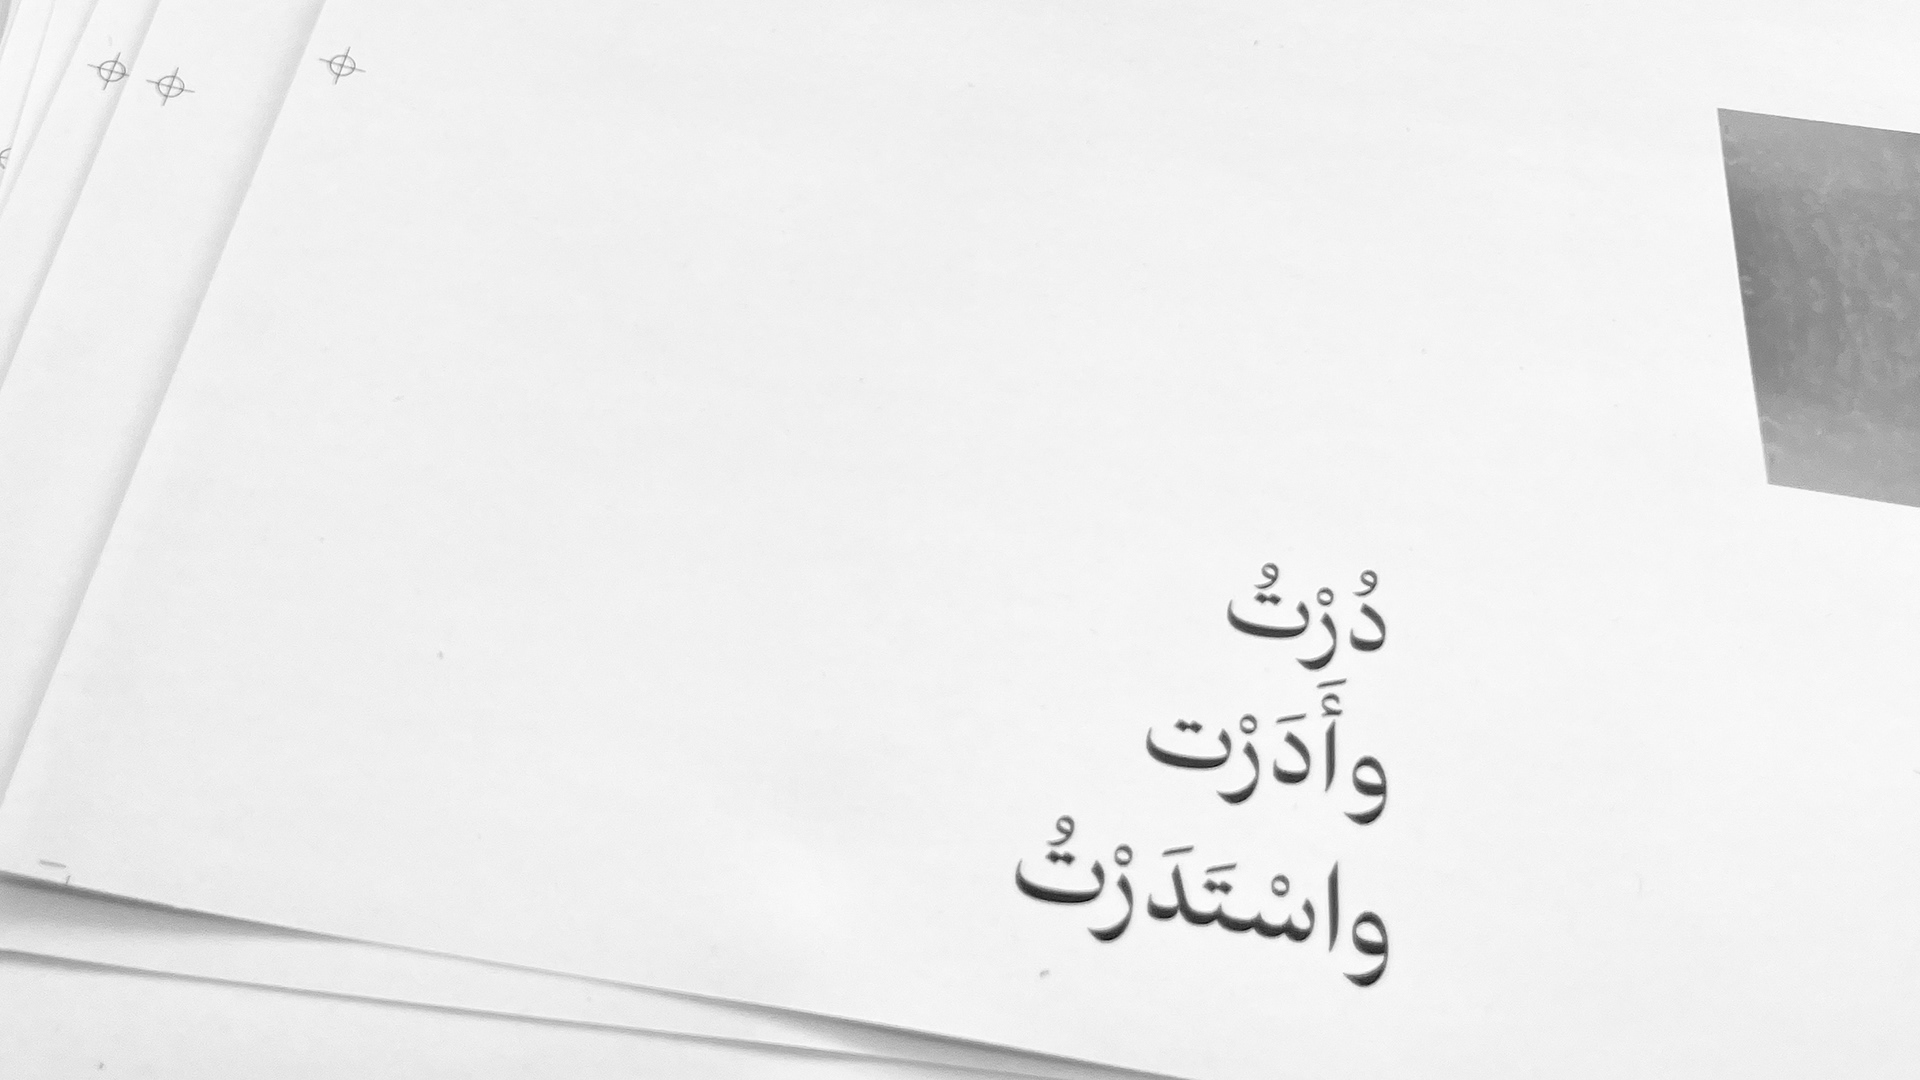 دُرْتُ
وأَدَرْت
واسْتَدَرْتُ